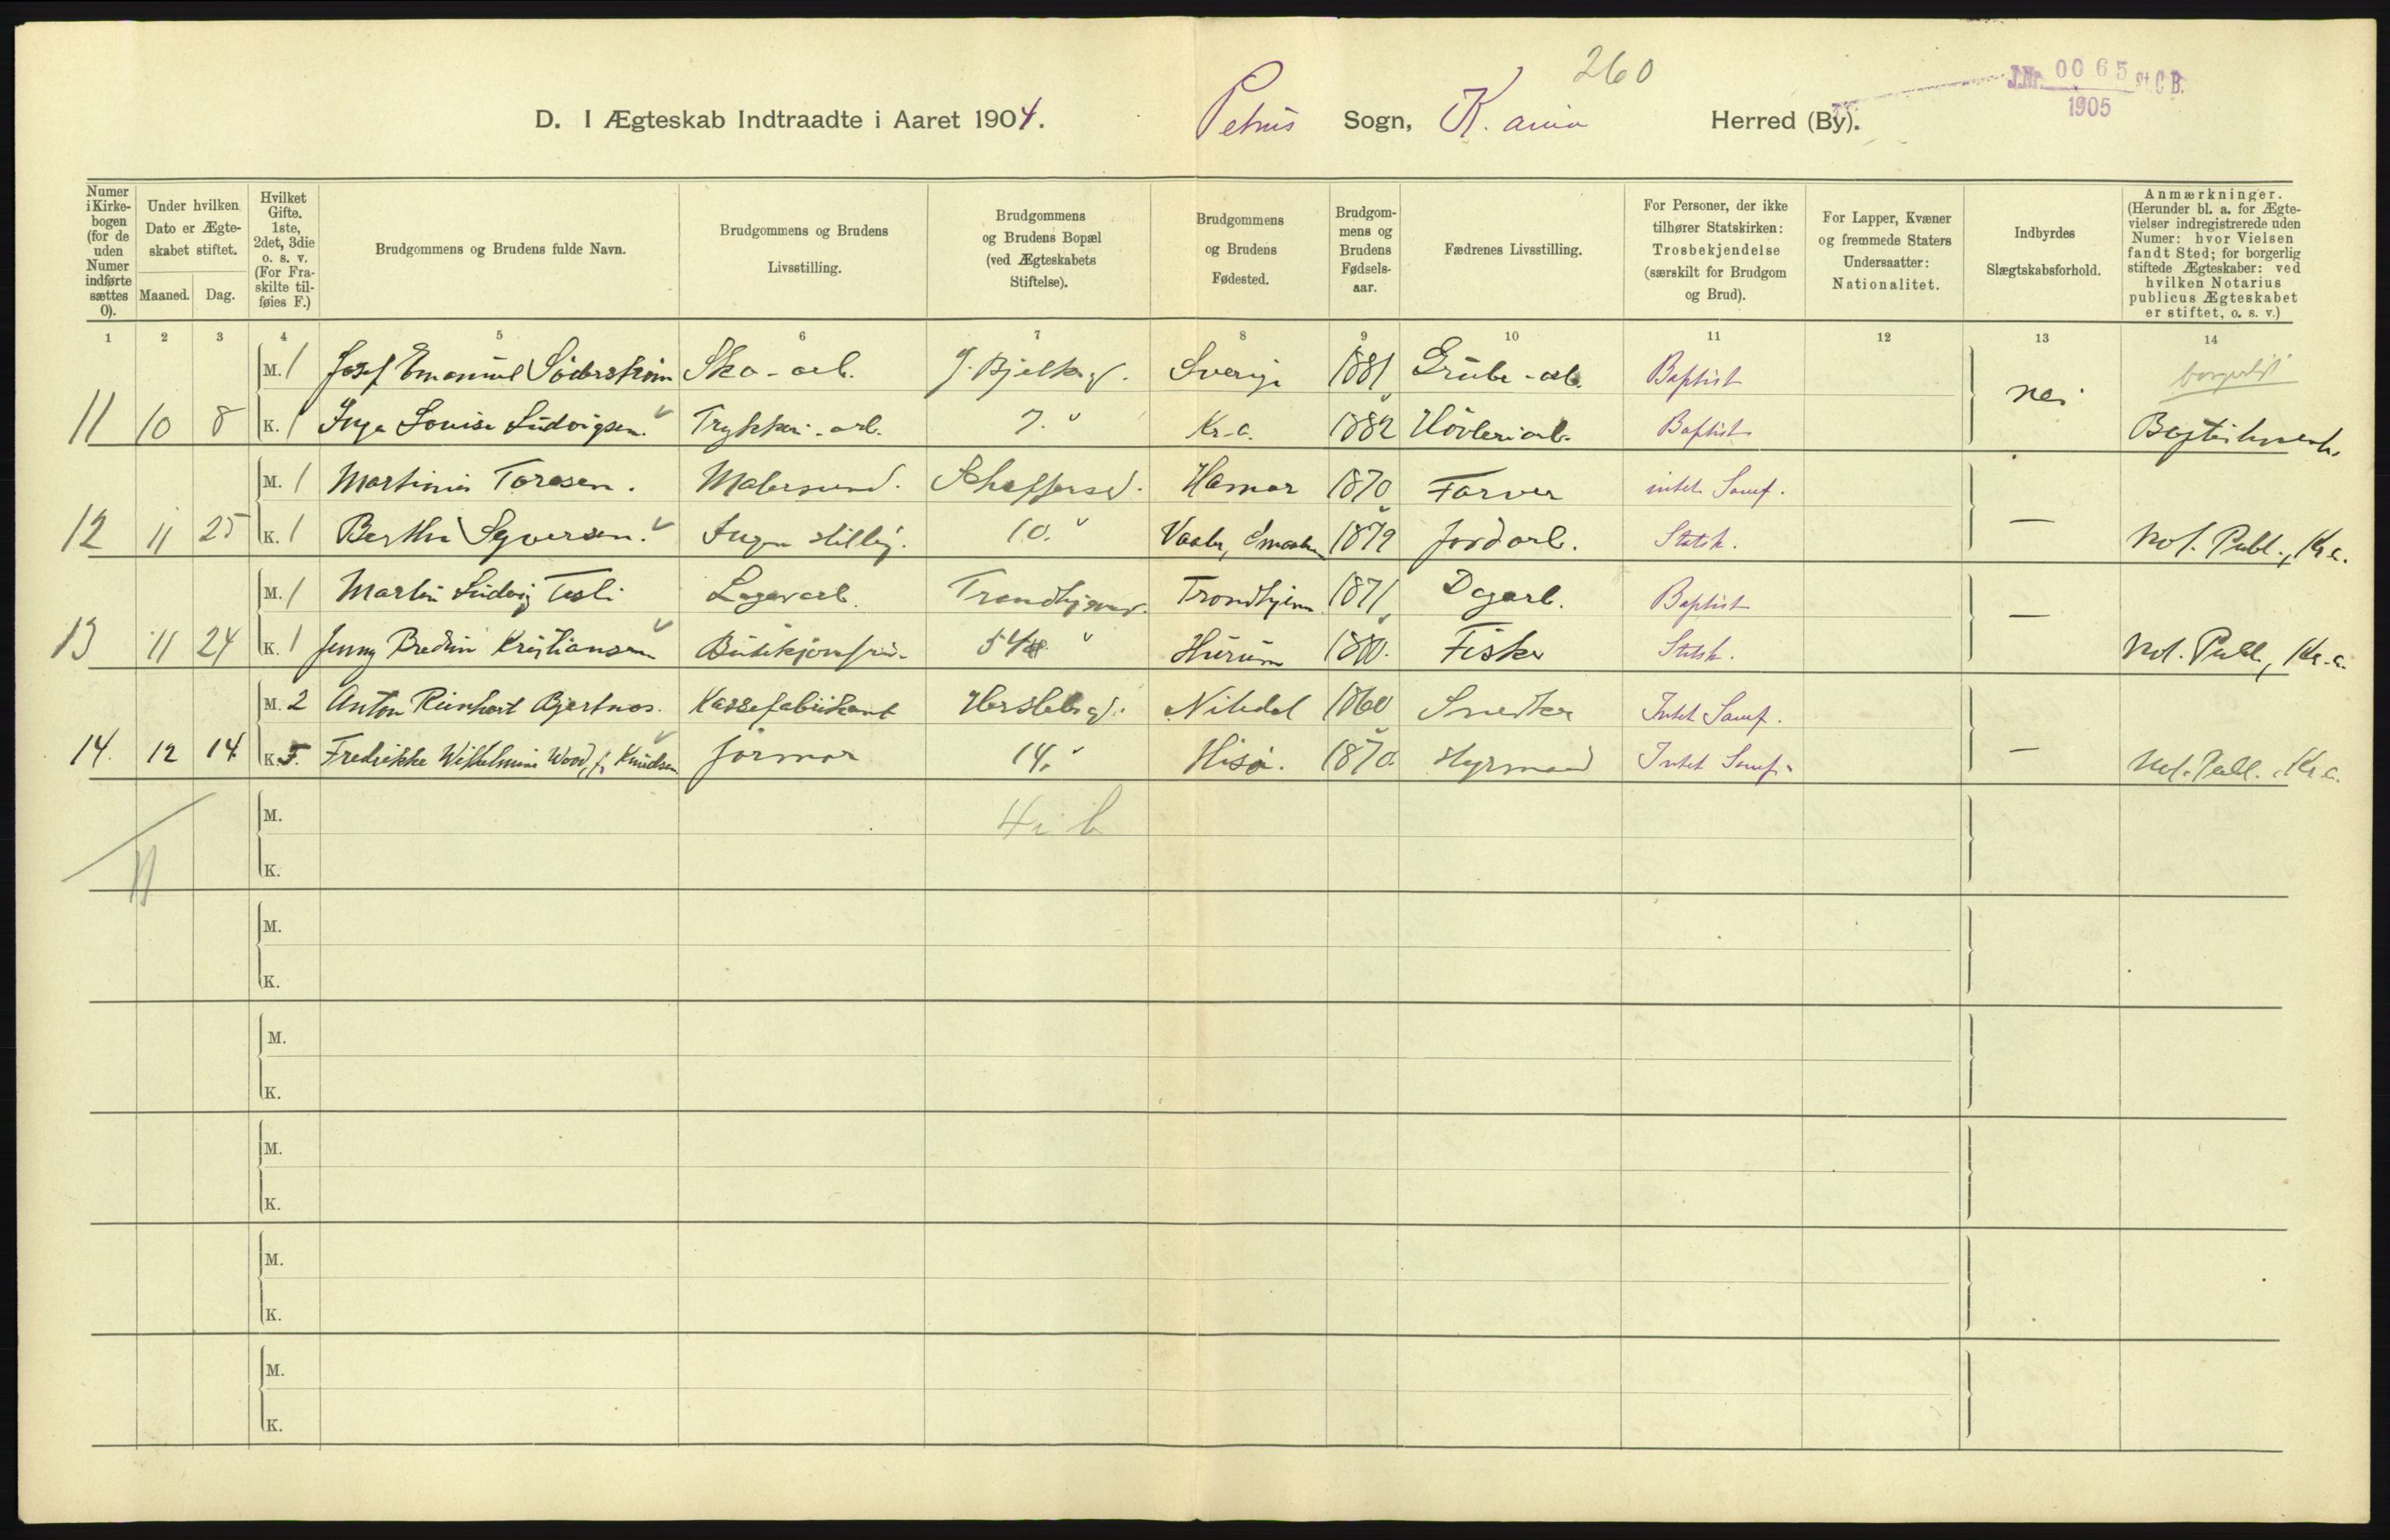 260
J.Nr. 0065 St.C.B.
1905
D. I Ægteskab Indtraadte i Aaret 1904. Petrus Sogn, K.ania Herred (By).
Numer i Kirkebogen (for de uden Numer indførte sættes 0).
Under hvilken Dato er Ægteskabet stiftet.
Maaned. Dag.
Hvilket Gifte. 1ste, 2det, 3die o. s. v. (For Fraskilte tilføies F.)
Brudgommens og Brudens fulde Navn.
Brudgommens og Brudens Livsstilling.
Brudgommens og Brudens Bopæl (ved Ægteskabets Stiftelse).
Brudgommens og Brudens Fødested.
Brudgommens og Brudens Fødselsaar.
Fædrenes Livsstilling.
For Personer, der ikke tilhører Statskirken: Trosbekjendelse (særskilt for Brudgom og Brud).
For Lapper, Kvæner og fremmede Staters Undersaatter: Nationalitet.
Indbyrdes Slægtskabsforhold.
Anmærkninger. (Herunder bl. a. for Ægtevielser indregistrerede uden Numer: hvor Vielsen fandt Sted; for borgerlig stiftede Ægteskaber: ved hvilken Notarius publicus Ægteskabet er stiftet, o. s. v.)
1 2 3 4 5 6 7 8 9 10 11 12 13 14
M. 1 Josef Emanuel Söderström Sko-arb. J. Bjelkesgd. Sverige 1881 Grube-arb. Baptist nei borgerligt
11 10 8 K. 1 Inga Louise Ludvigsen. Trykkeri-arb. 7. Kr.a. 1882 Høvleriarb. Baptist
M. 1 Martinius Toresen. Malersvend. Schæffersgd. Hamar 1870 Farver intet Samf.
12 11 25 K. 1 Berthe Syversen. Ingen stilling. 10. Vaaler, Smaalen 1879 Jordarb. Statsk. — Not. Publ., Kr.a.
M. 1 Martin Ludvig Tesli Lagerarb. Trondhjemsv. Trondhjem 1871 Dagarb. Baptist
13 11 24 K. 1 Jenny Kristiansen 54 Hurum 1880. Fisker Statsk. — Not. Publ., Kr.a.
M. 2 Anton Reinhart Bjertnæs. Kassefabrikant Herslebsgd. Nitedal 1860 Snedker Intet Samf.
14. 12 14 K. F. Fredrikke Wilhelmine Wood, f. Knudsen Jormor 14. Hisø. 1870. Styrmand Intet Samf. — Not. Publ. Kr.a.
M.
K.
M.
K.
M.
K.
M.
K.
M.
K.
M.
K.